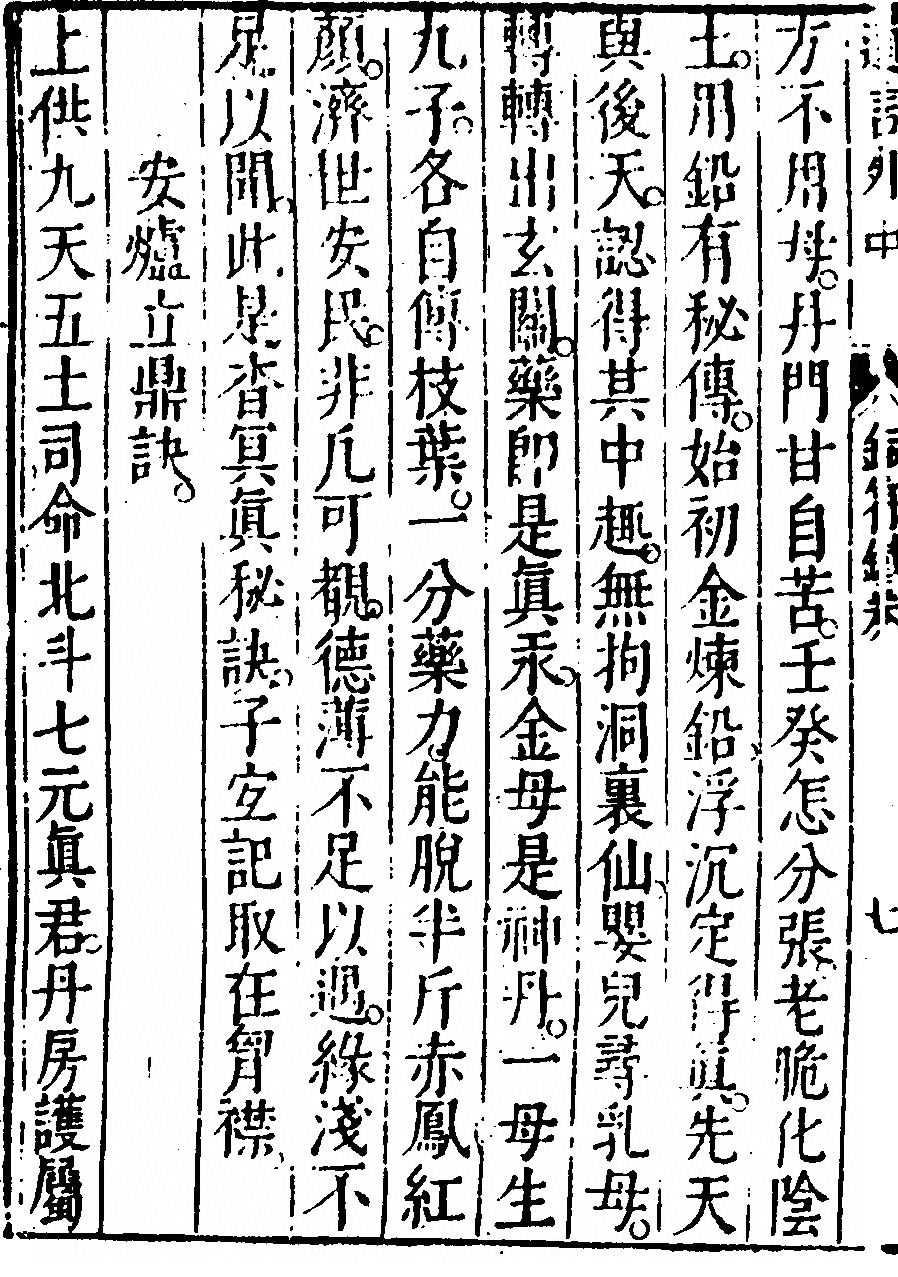 方不用母丹門甘自苦壬癸怎分張老脆化陰
土用鉛有秘傳始初金煉鉛浮沉定得真先天
與後天認得其中趣無拘洞裏仙嬰兒尋乳母
轉轉出玄關藥即是眞汞金母是神丹一母生
九子各自傳枝葉一分藥力能脫半斤赤鳳紅
顔濟世安民非凡可覩德薄不足以遇緣淺不
足以聞此是杳冥眞秘訣子宜記取在胷襟
安爐立鼎訣
上供九天五土司命北斗七元眞君丹房護屬